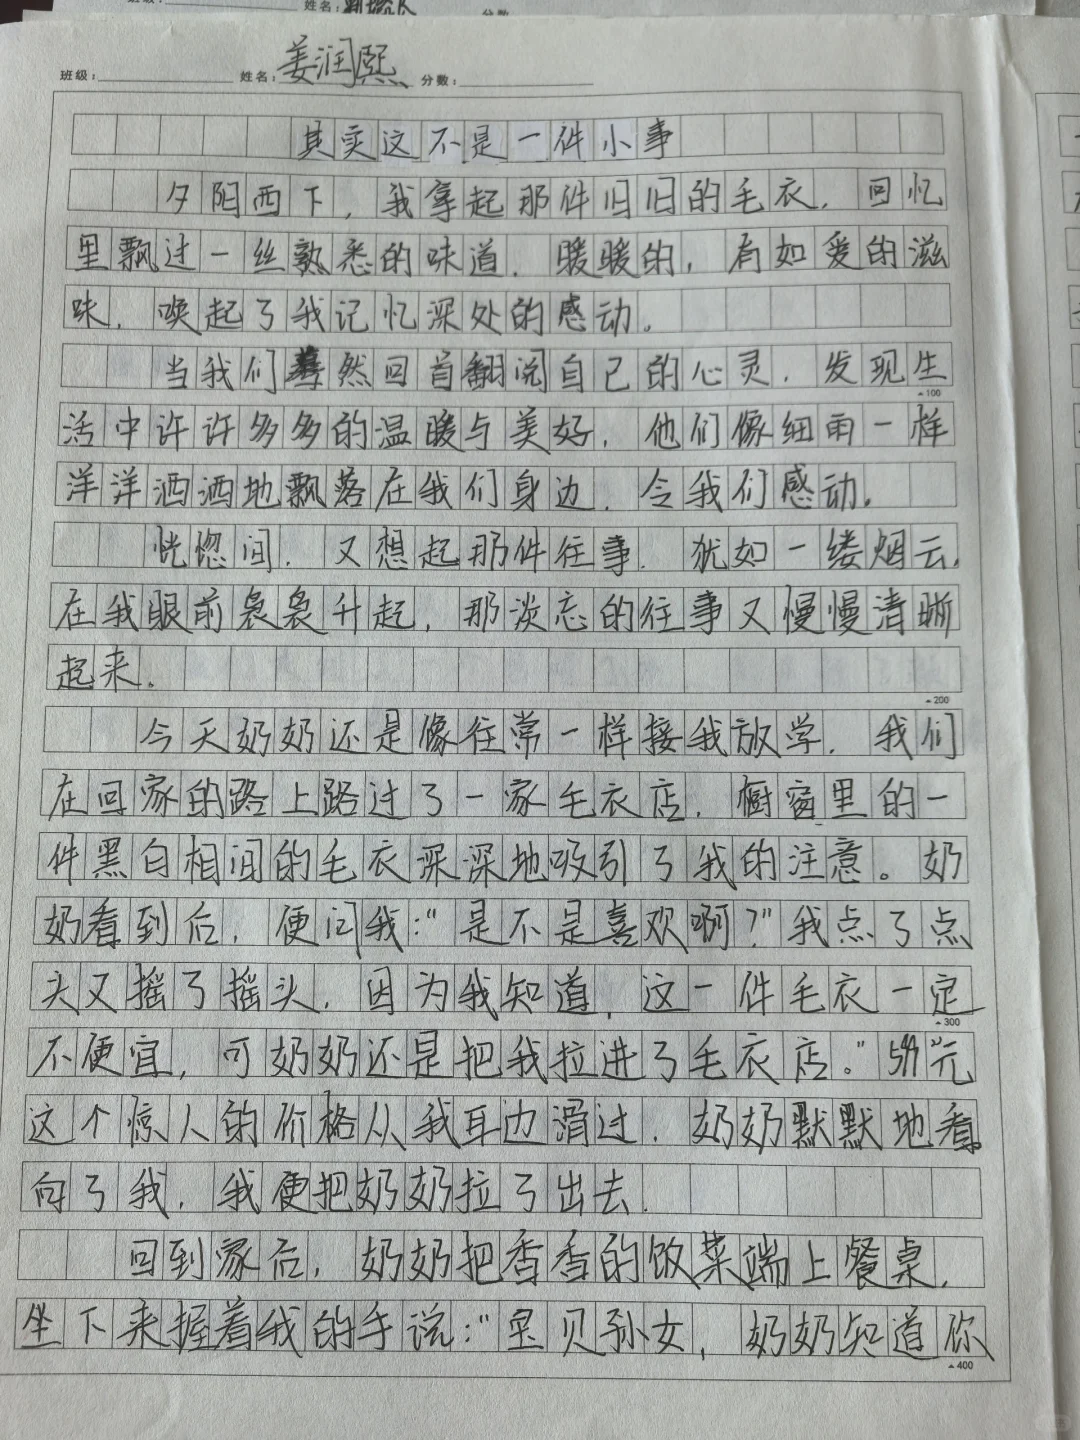 班级: 姓名: 姜润熙 分数:
其实这不是一件小事
夕阳西下，我拿起那件旧旧的毛衣，回忆
里飘过一丝熟悉的味道，暖暖的，有如爱的滋
味，唤起了我记忆深处的感动。
当我们蓦然回首翻阅自己的心灵，发现生
100
活中许许多多的温暖与美好，他们像细雨一样
洋洋洒洒地飘落在我们身边，令我们感动。
恍惚间，又想起那件往事，犹如一缕烟云，
在我眼前袅袅升起，那淡忘的往事又慢慢清晰
起来。
200
今天奶奶还是像往常一样接我放学，我们
在回家的路上路过了一家毛衣店，橱窗里的一
件黑白相间的毛衣深深地吸引了我的注意。奶
奶看到后，便问我："是不是喜欢啊？"我点了点
头又摇了摇头，因为我知道，这一件毛衣一定
300
不便宜，可奶奶还是把我拉进了毛衣店。"599"元
这个惊人的价格从我耳边滑过，奶奶默默地看
向了我，我便把奶奶拉了出去。
回到家后，奶奶把香香的饭菜端上餐桌，
坐下来握着我的手说："宝贝孙女，奶奶知道你
400